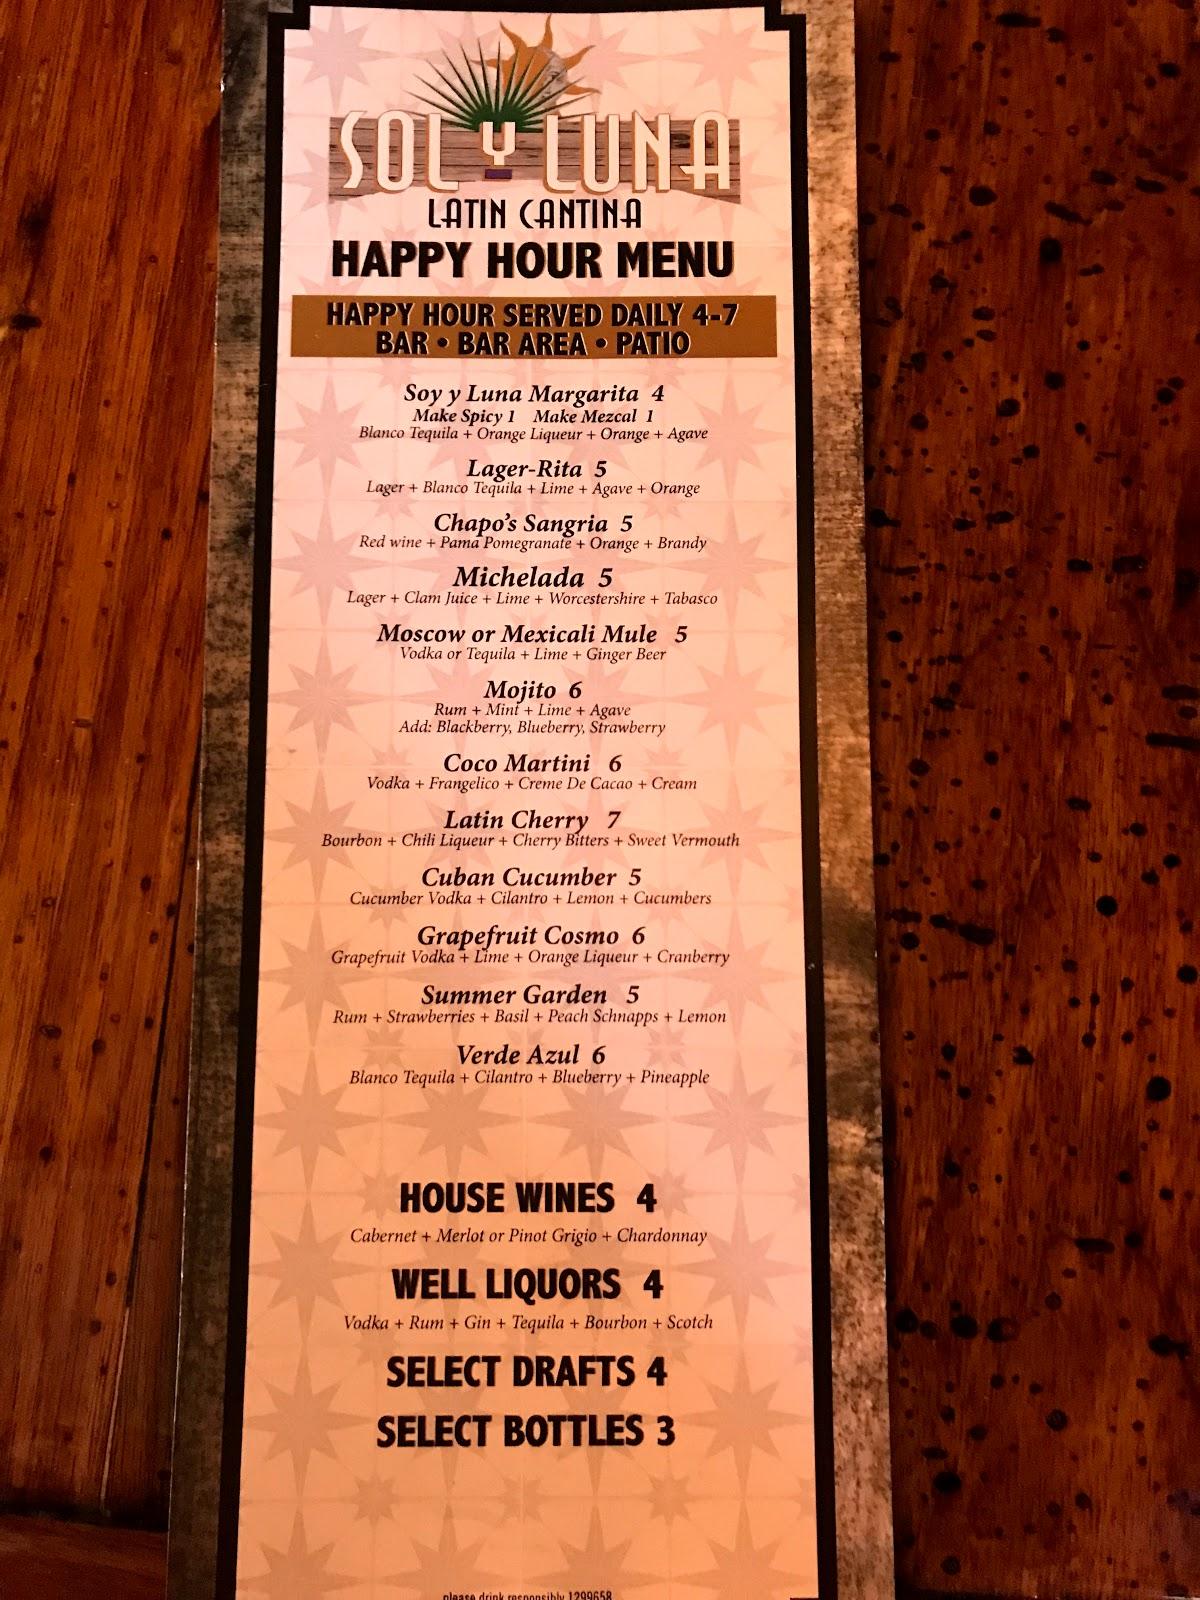 SOL Y LUNA
LATIN CANTINA
HAPPY HOUR MENU
HAPPY HOUR SERVED DAILY 4-7
BAR • BAR AREA • PATIO
Soy y Luna Margarita 4
Make Spicy 1 Make Mezcal 1
Blanco Tequila + Orange Liqueur + Orange + Agave
Lager-Rita 5
Lager + Blanco Tequila + Lime + Agave + Orange
Chapo's Sangria 5
Red wine + Pama Pomegranate + Orange + Brandy
Michelada 5
Lager + Clam Juice + Lime + Worcestershire + Tabasco
Moscow or Mexicali Mule 5
Vodka or Tequila + Lime + Ginger Beer
Mojito 6
Rum + Mint + Lime + Agave
Add: Blackberry, Blueberry, Strawberry
Coco Martini 6
Vodka + Frangelico + Creme De Cacao + Cream
Latin Cherry 7
Bourbon + Chili Liqueur + Cherry Bitters + Sweet Vermouth
Cuban Cucumber 5
Cucumber Vodka + Cilantro + Lemon + Cucumbers
Grapefruit Cosmo 6
Grapefruit Vodka + Lime + Orange Liqueur + Cranberry
Summer Garden 5
Rum + Strawberries + Basil + Peach Schnapps + Lemon
Verde Azul 6
Blanco Tequila + Cilantro + Blueberry + Pineapple
HOUSE WINES 4
Cabernet + Merlot or Pinot Grigio + Chardonnay
WELL LIQUORS 4
Vodka + Rum + Gin + Tequila + Bourbon + Scotch
SELECT DRAFTS 4
SELECT BOTTLES 3
please drink responsibly 1299658